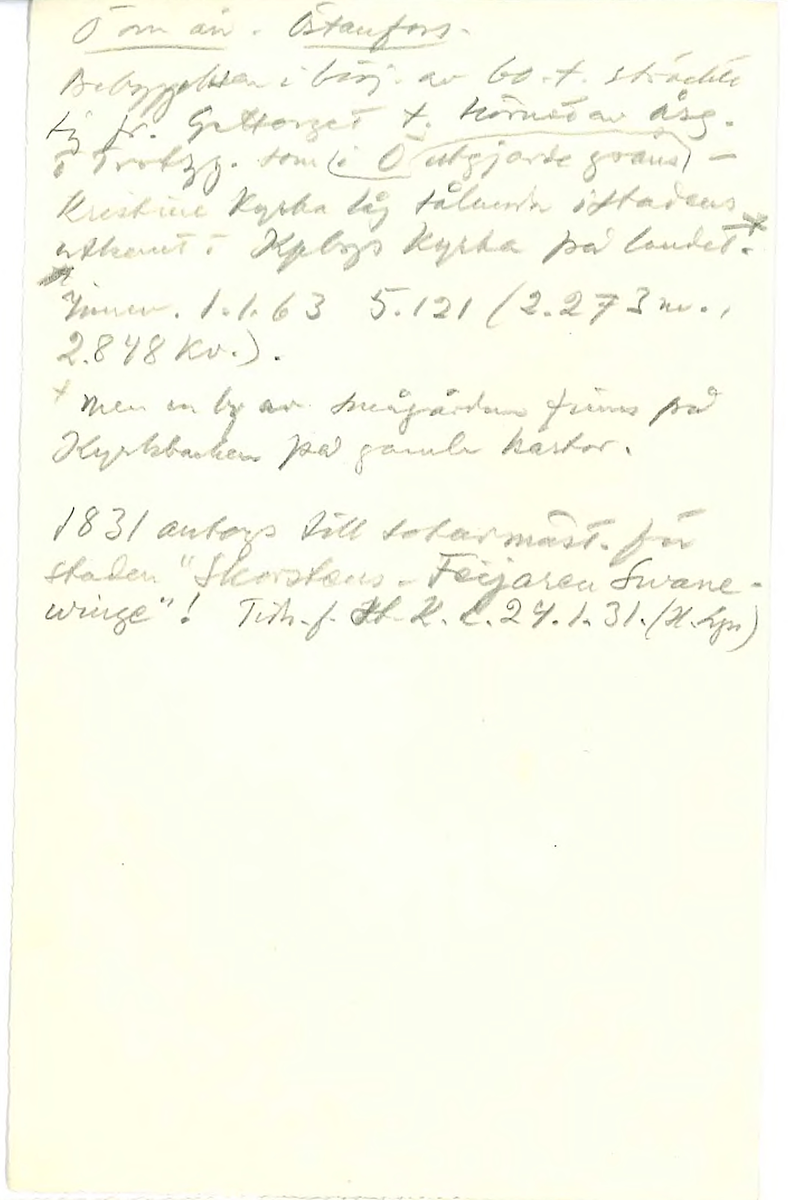 Ö om ån. Östanfors.
Bebyggelsen i börj. av 60-t. sträckte
sig fr. Gttorget t. hörnet av Åsg.
o Trotzg. som (i Ö utgjorde gräns) –
Kristine Kyrka låg således i stadens
utkant o Kpbgs Kyrka på landet. +
Innev. 1.1.63 5.121 (2.273 m.,
2.848 Kv.).
+ men en by av smågårdar finns på
Kyrkbacken på gamla kartor.
1831 antogs till sotarmäst. för
staden "Skorstens-Feijaren Swane-
winge"! Tidn. f. St. K. L. 24.1.31. (H. Lgn)